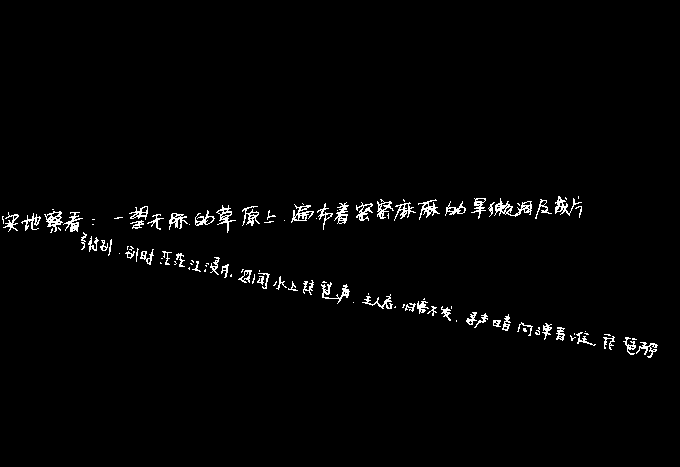 实地察看：一望无际的草原上.遍布着密密麻麻的旱獭洞及成片
将别.别时茫茫江浸月.忽闻水上琵琶声.主人忘归客不发.寻声暗问弹者谁.琵琶停